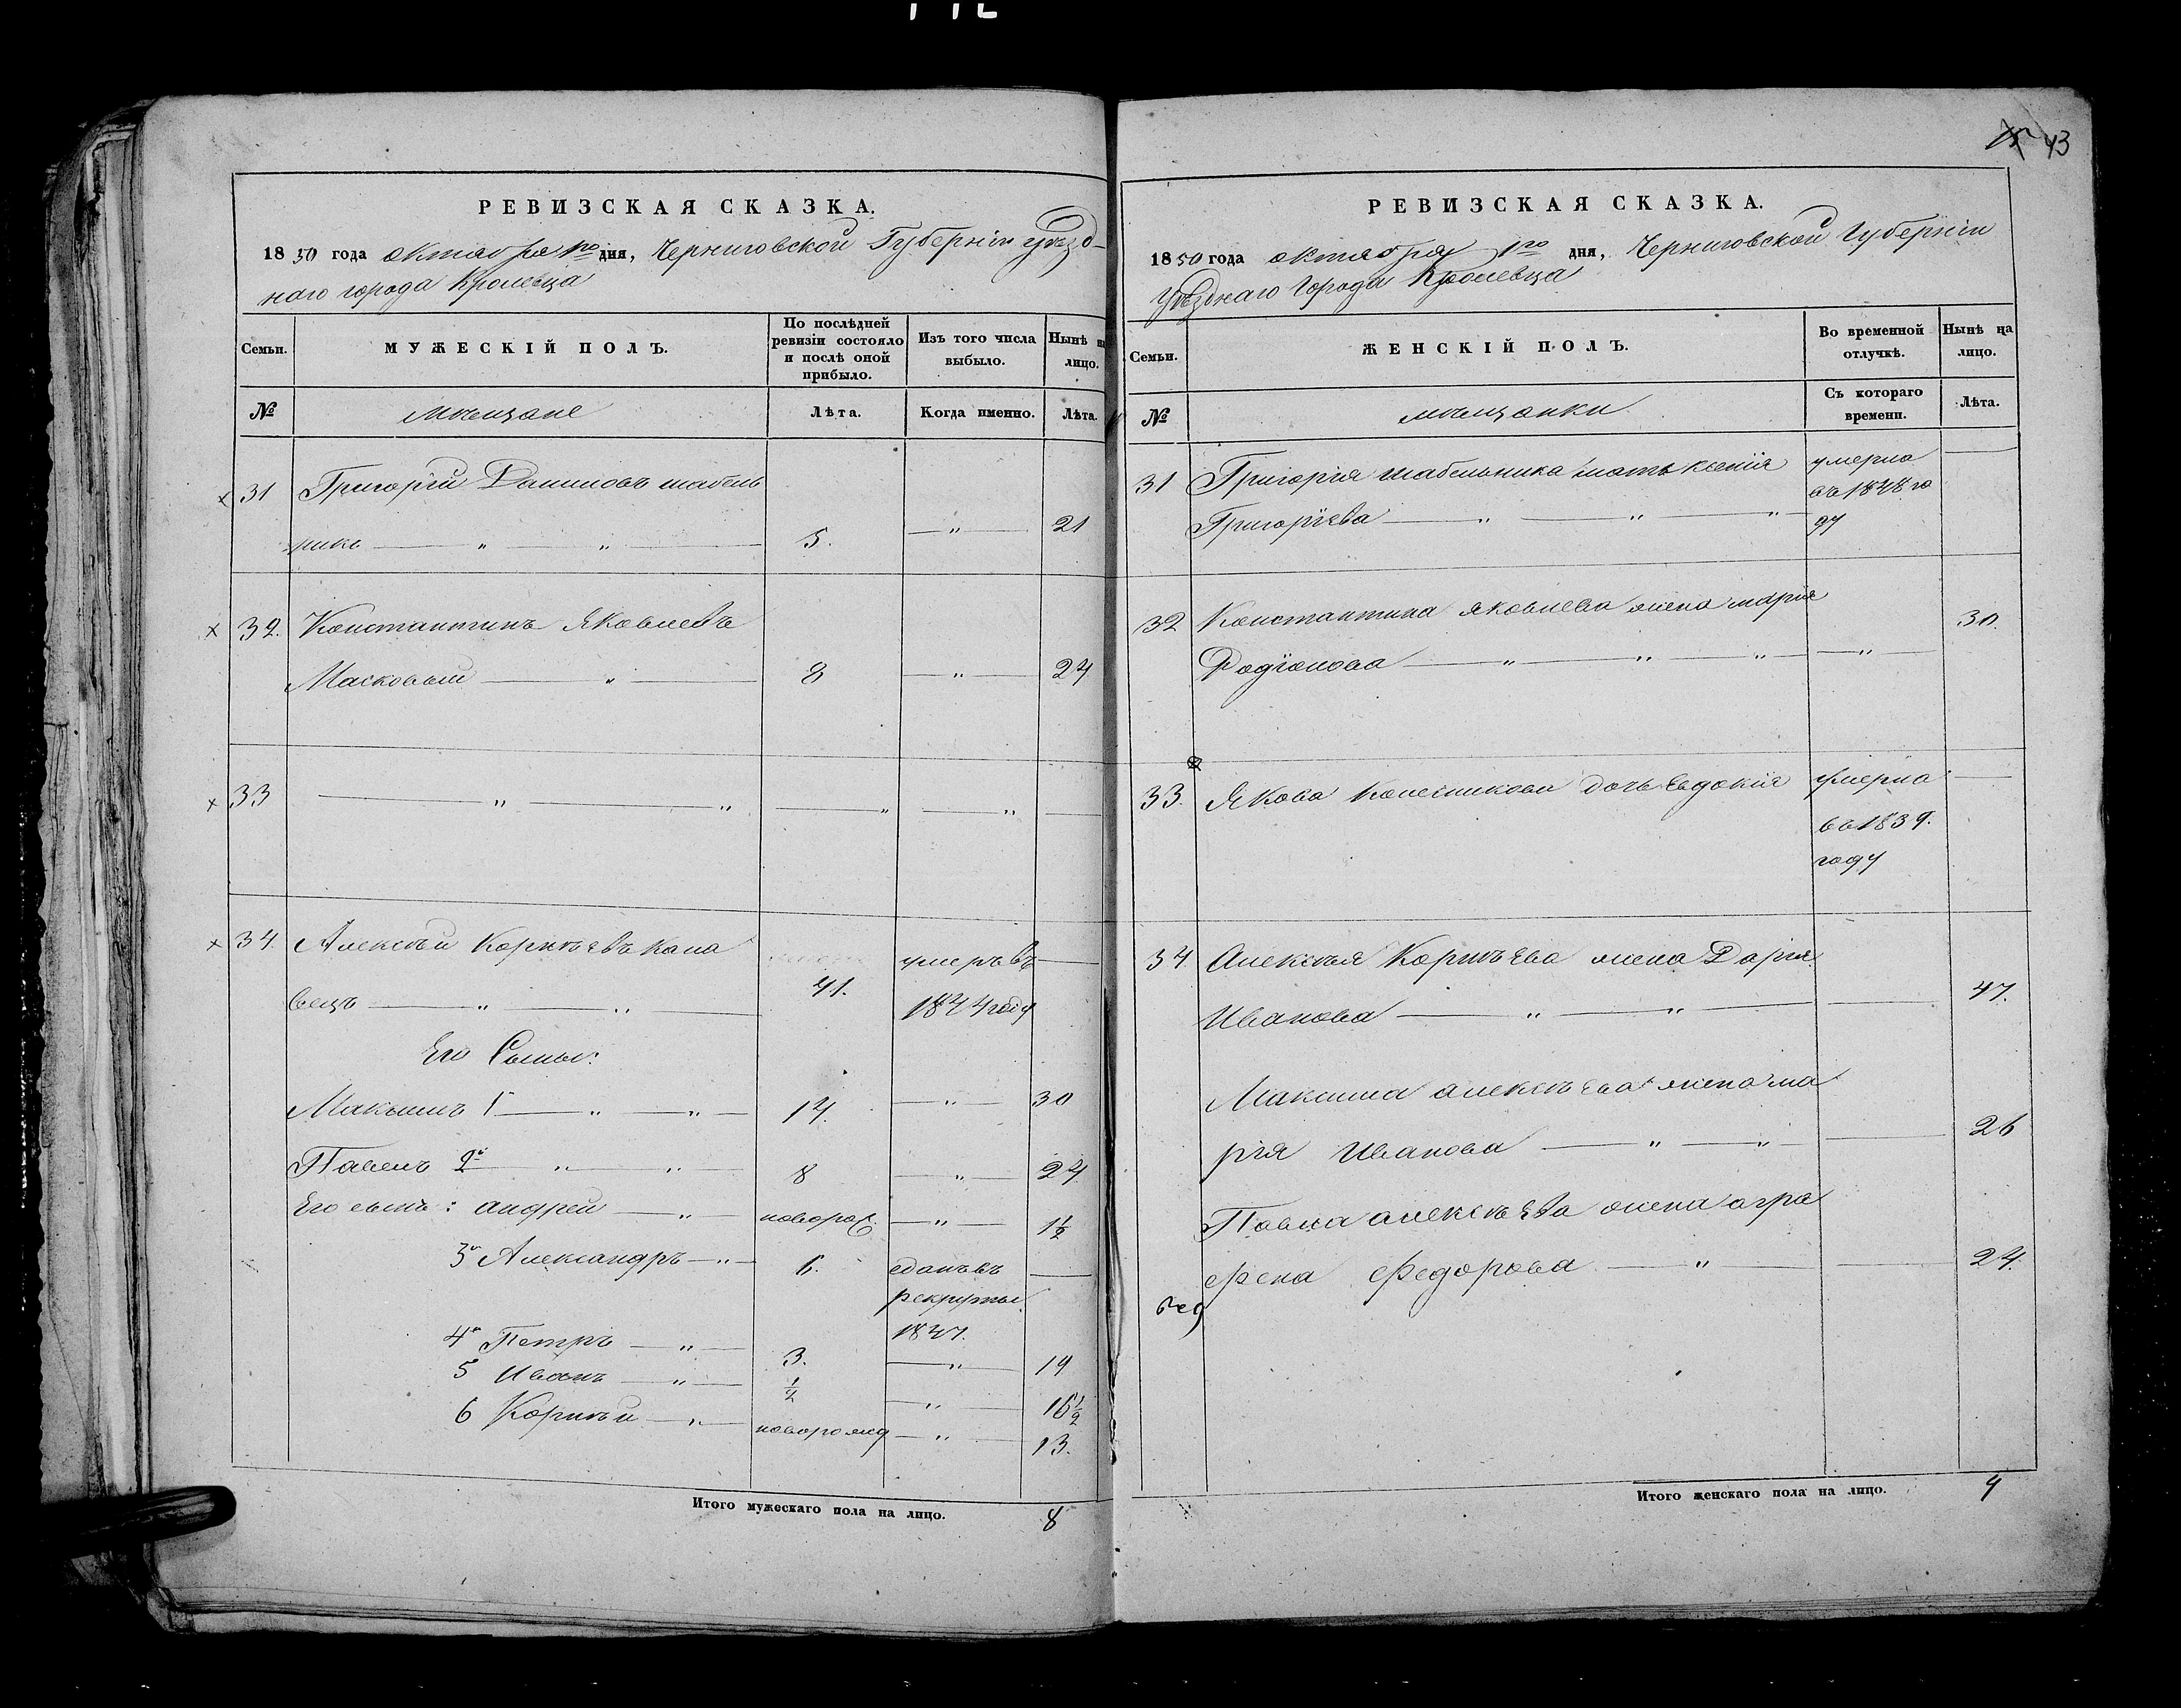 РЕВИЗСКАЯ СКАЗКА.
1850 года октября 1го дня, Черниговской Губернiи уѣзд-
наго города Кролевца
Семьи.
МУЖЕСКIЙ ПОЛЪ.
По послѣдней
ревизiи состояло
и послѣ оной
прибыло.
Изъ того числа
выбыло.
Нынѣ на
лицо.
№
мѣщане
Лѣта.
Когда именно.
Лѣта.
х 31 Григорiй Даниловъ шабель
никъ — „ — „ — 5. — „ — 21
х 32. Константинъ Яковлевъ
Масковый — „ — 8 — „ — 24
х 33 — „ — „ — „ — „ —
х 34. Алексѣй Корнѣевъ Кала
умеръ въ —
вецъ — „ — „ — 41. 1844 году
Его Сыны:
Максимъ 1 — „ — „ — 14. — „ — 30
Павелъ 2й „ — „ 8 — „ — 24
Его сынъ: андрей — „ — новорож. — „ — 1½
3й Александръ — „ — 6. сданъ въ —
рекруты
1847.
4й Петръ — „ — 3. — „ — 19
5 Иванъ — „ — ½ — „ — 16½
6 Корнѣй — „ — новорожд — „ — 13.
Итого мужескаго пола на лицо. 8
43
РЕВИЗСКАЯ СКАЗКА.
1850 года октября 1го дня, Черниговской Губернiи
Уѣзднаго Города Кролевца
Семьи.
ЖЕНСКIЙ ПОЛЪ.
Во временной
отлучкѣ.
Нынѣ на
лицо.
№
мѣщанки
Съ котораго
времени.
Лѣта.
31 Григорiя шабельника мать ксенiя умерла —
въ 1848 го
Григорiева — „ — „ — „ ду
32 Константина яковлева жена марiя
30.
Родiонова — „ — „ — „ — „ —
33. Якова Колесникова дочь Евдокiя умерла —
въ 1839.
году
34 Алексѣя Корнѣева жена Дарiя
Иванова — „ — „ — 47.
Максима алексѣева жена ма
рiя Иванова — „ — „ — 26
Павла алексѣева жена агра
фена Федорова — „ — 24.
Итого женскаго пола на лицо. 4